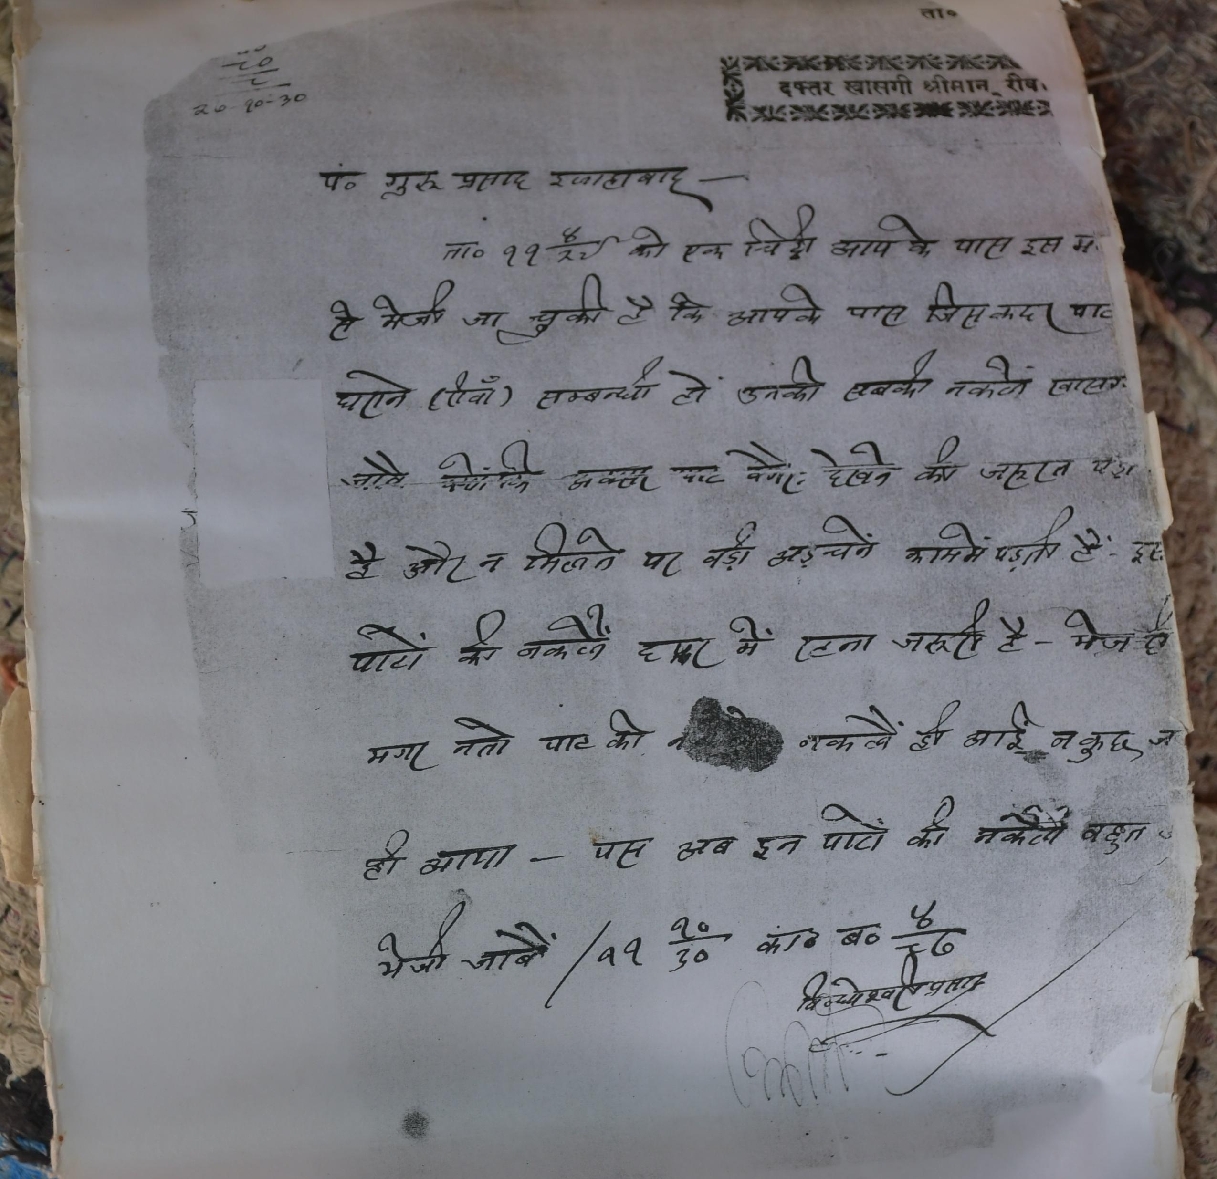 ता०
दफ्तर खासगी श्रीमान् रीवा
२७-१०-३०
पं० गुरू प्रसाद इलाहाबाद —
ता० ११ को एक चिट्ठी आप के पास इस
से भेजी जा चुकी है कि आपके पास जिस कदर पाट
घराने (रीवाँ) सम्बन्धी हों उनकी सबकी नकलें खासग
जावै क्योंकि अक्सर पाट वगैरः देखने की जरूरत पड़
है और न मिलने पर बड़ी अड़चनें काममें पड़ती हैं - इस
पाटों की नकलें दफ्तर में रहना जरूरी है - भेज
मगर नतो पाट की नकलें ही आईं न कुछ ज
ही आया — पस अब इन पाटों की नकलैं बहुत
भेजी जावैं / ११ १०/३० का० ब० ४/८७
विन्ध्येश्वरीप्रसाद